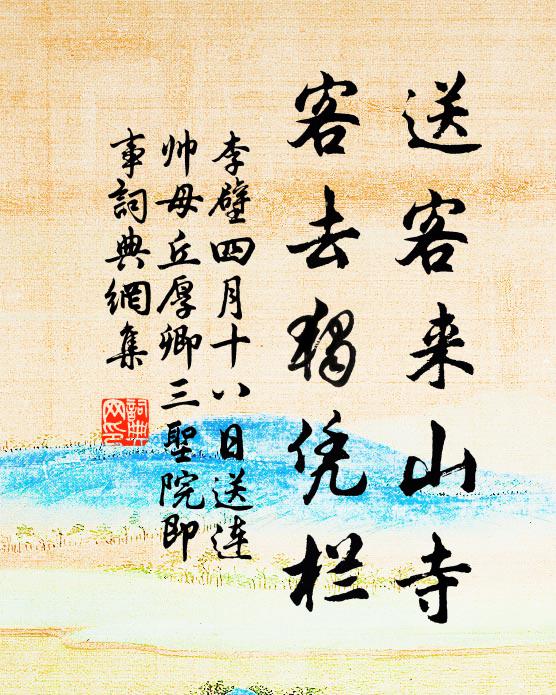 送客来山寺
客去独凭栏
李壁四月十八日送连
帅毋丘厚卿三聖院即
事詞典網集
詞典网印